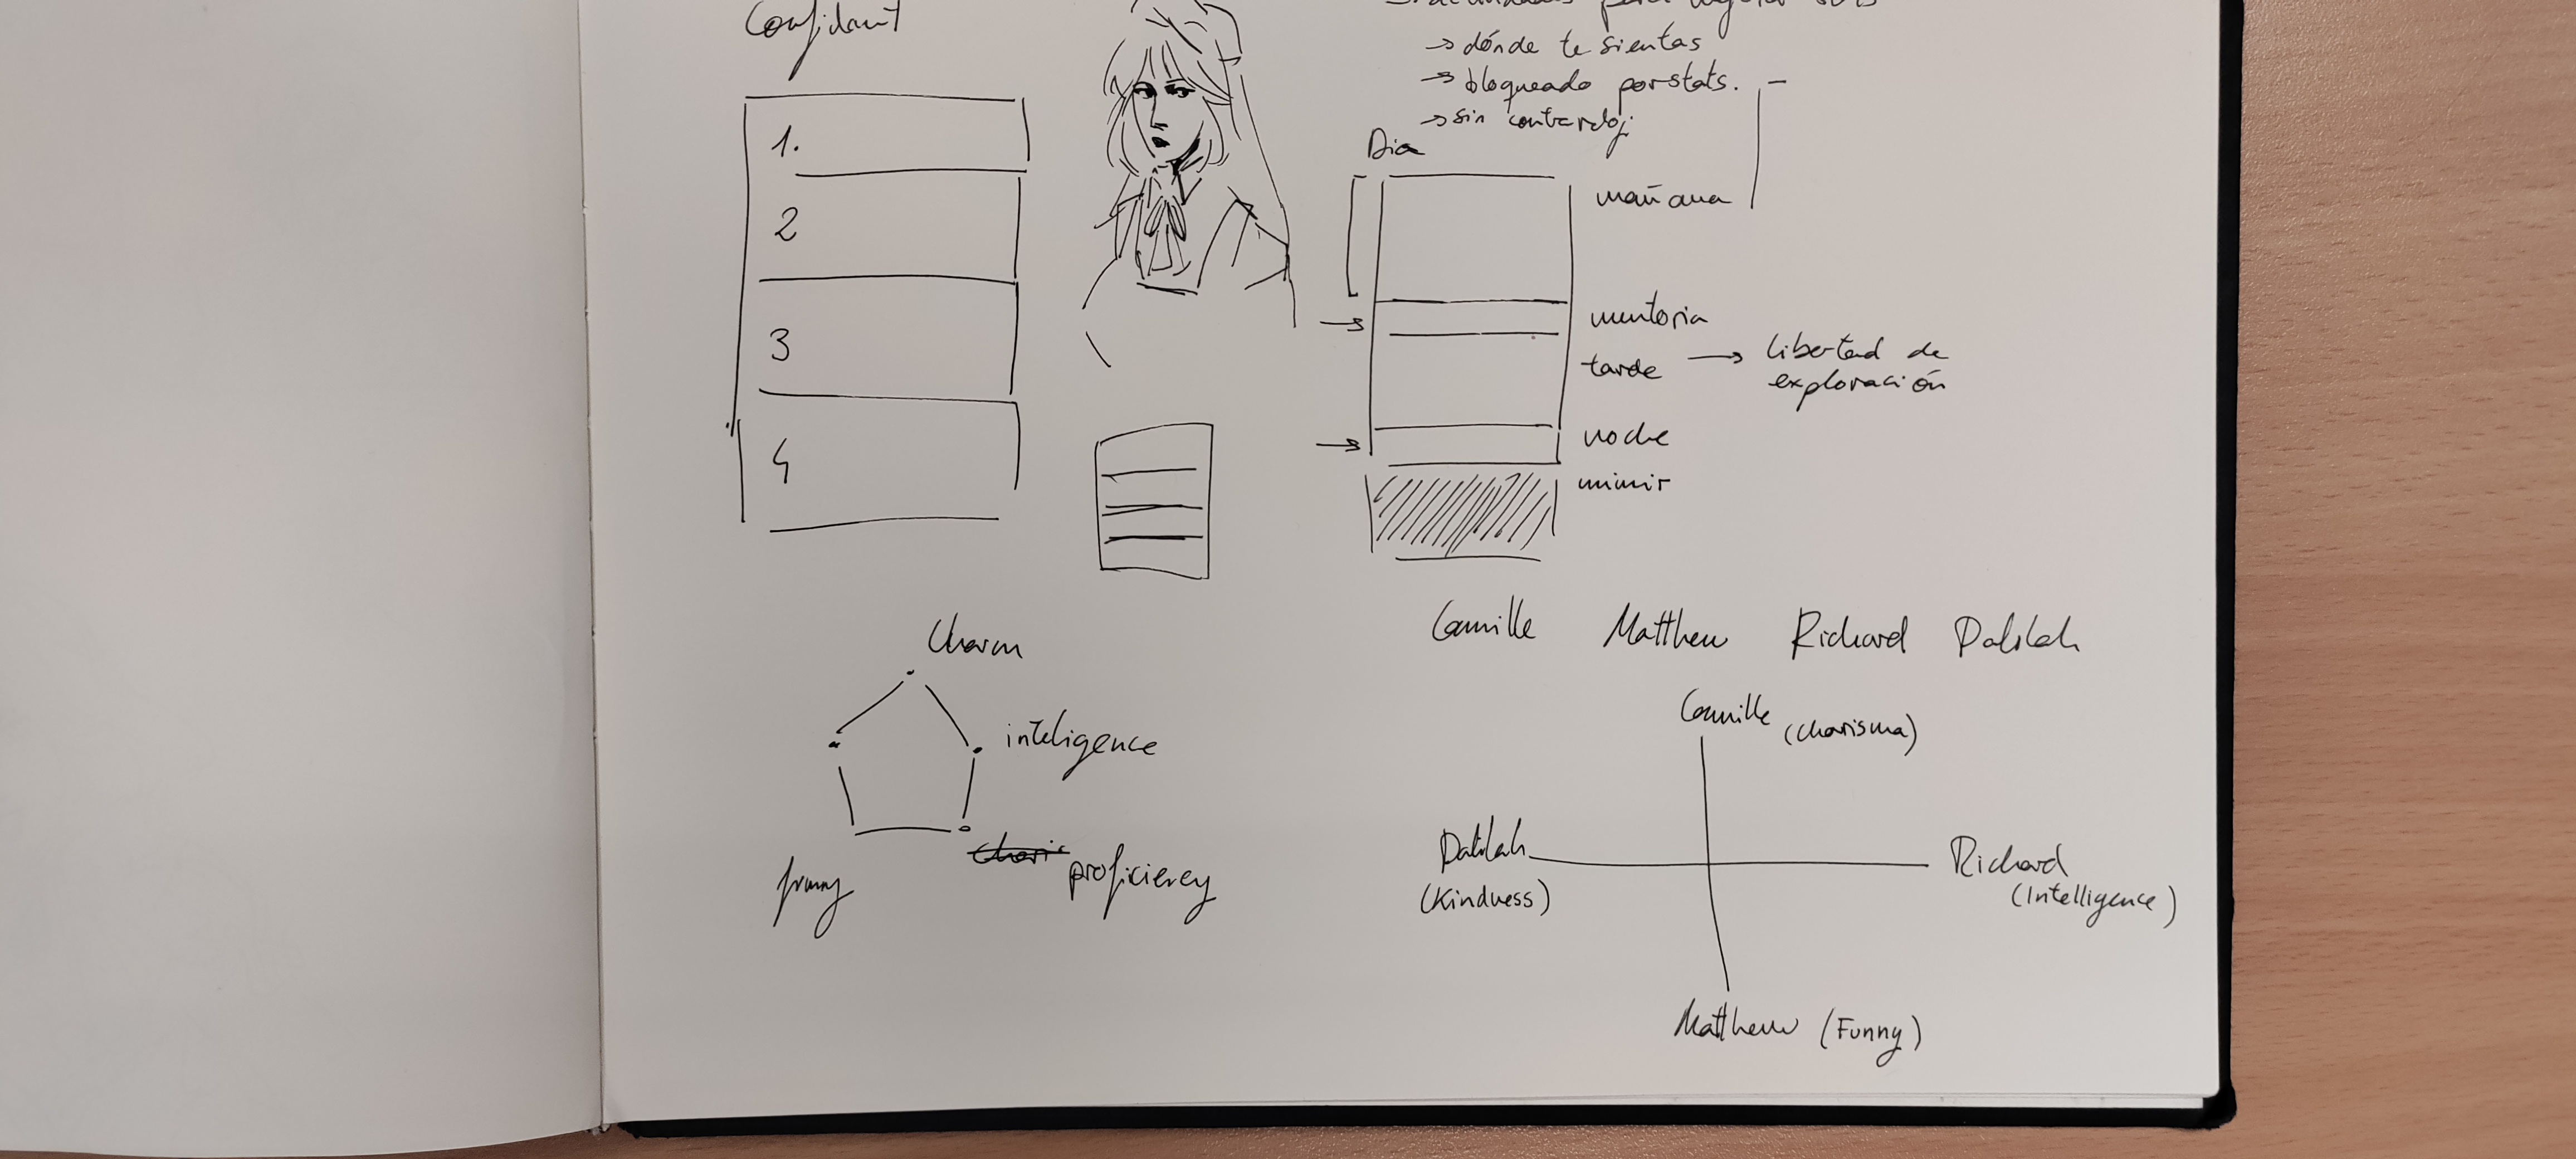 Confidant
1.
2
3
4
→ dónde te sientas
→ bloqueado por stats.
→ sin contrareloj
Dia
mañana
mentoria
tarde → libertad de
exploración
noche
mimir
Charm
inteligence
proficiency
funny
Camille Matthew Richard Dalilah
Camille (Charisma)
Dalilah
(Kindness)
Richard
(Intelligence)
Matthew (Funny)